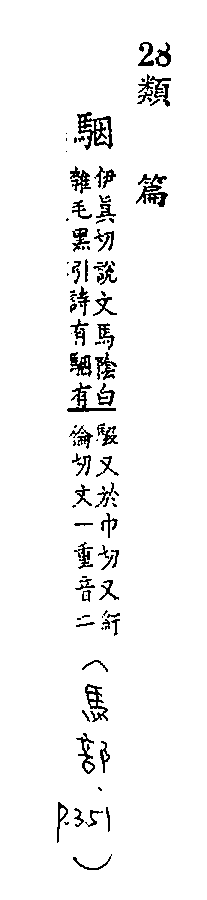 28類篇
駰
伊眞切說文馬陰白
雜毛黑引詩有駰有
騢又於巾切又紆
倫切文一重音二
(馬部、p.351)